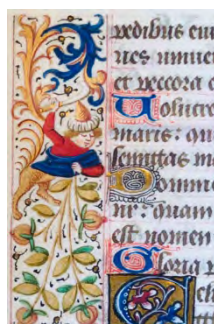 pedibus eiu
ues uniuer
et peccora c
Volucre
maris: qu
semitas m
Domine
nr: quam
est nomen
Gloria p